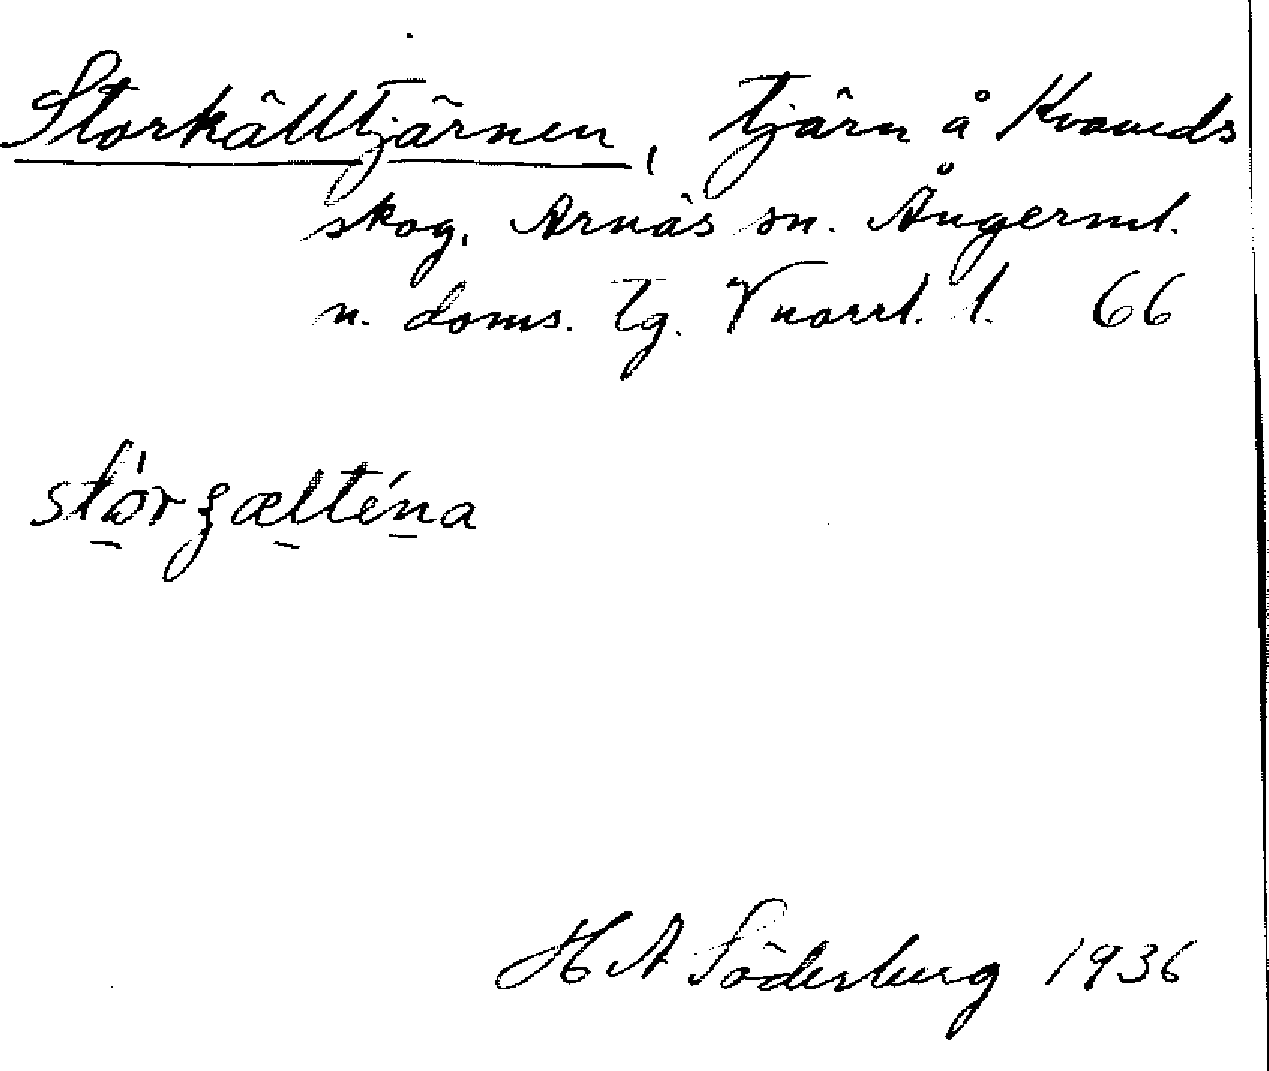 Storkälltjärnen, tjärn å Kvaneds
skog, Arnäs sn. Ångerml.
n. doms. Tg. V norrl. l. 66
H A Söderberg 1936